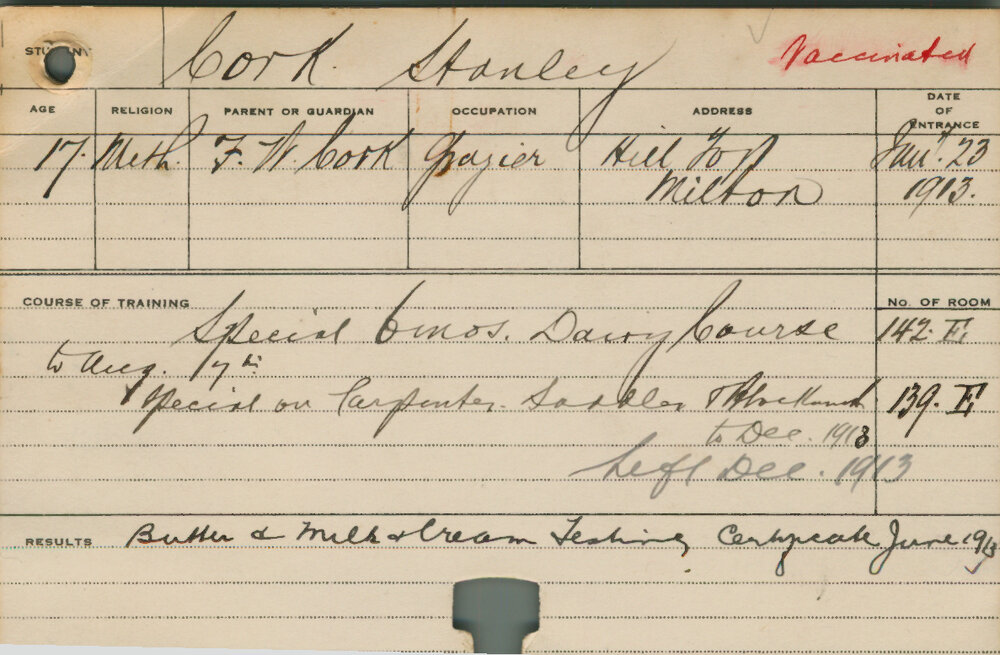 STUDENT Cork Stanley Vaccinated
AGE RELIGION PARENT OR GUARDIAN OCCUPATION ADDRESS DATE OF ENTRANCE
17. Meth. F. W. Cork Grazier Hill Top Jany. 23
Milton 1913.
COURSE OF TRAINING No. OF ROOM
Special 6 mos. Dairy Course 142. E
to Aug. 17th
Special on Carpenter. Saddler & 139. E
to Dec. 1913
Left Dec. 1913
RESULTS Butter & Milk & Cream Testing Certificate June 1913